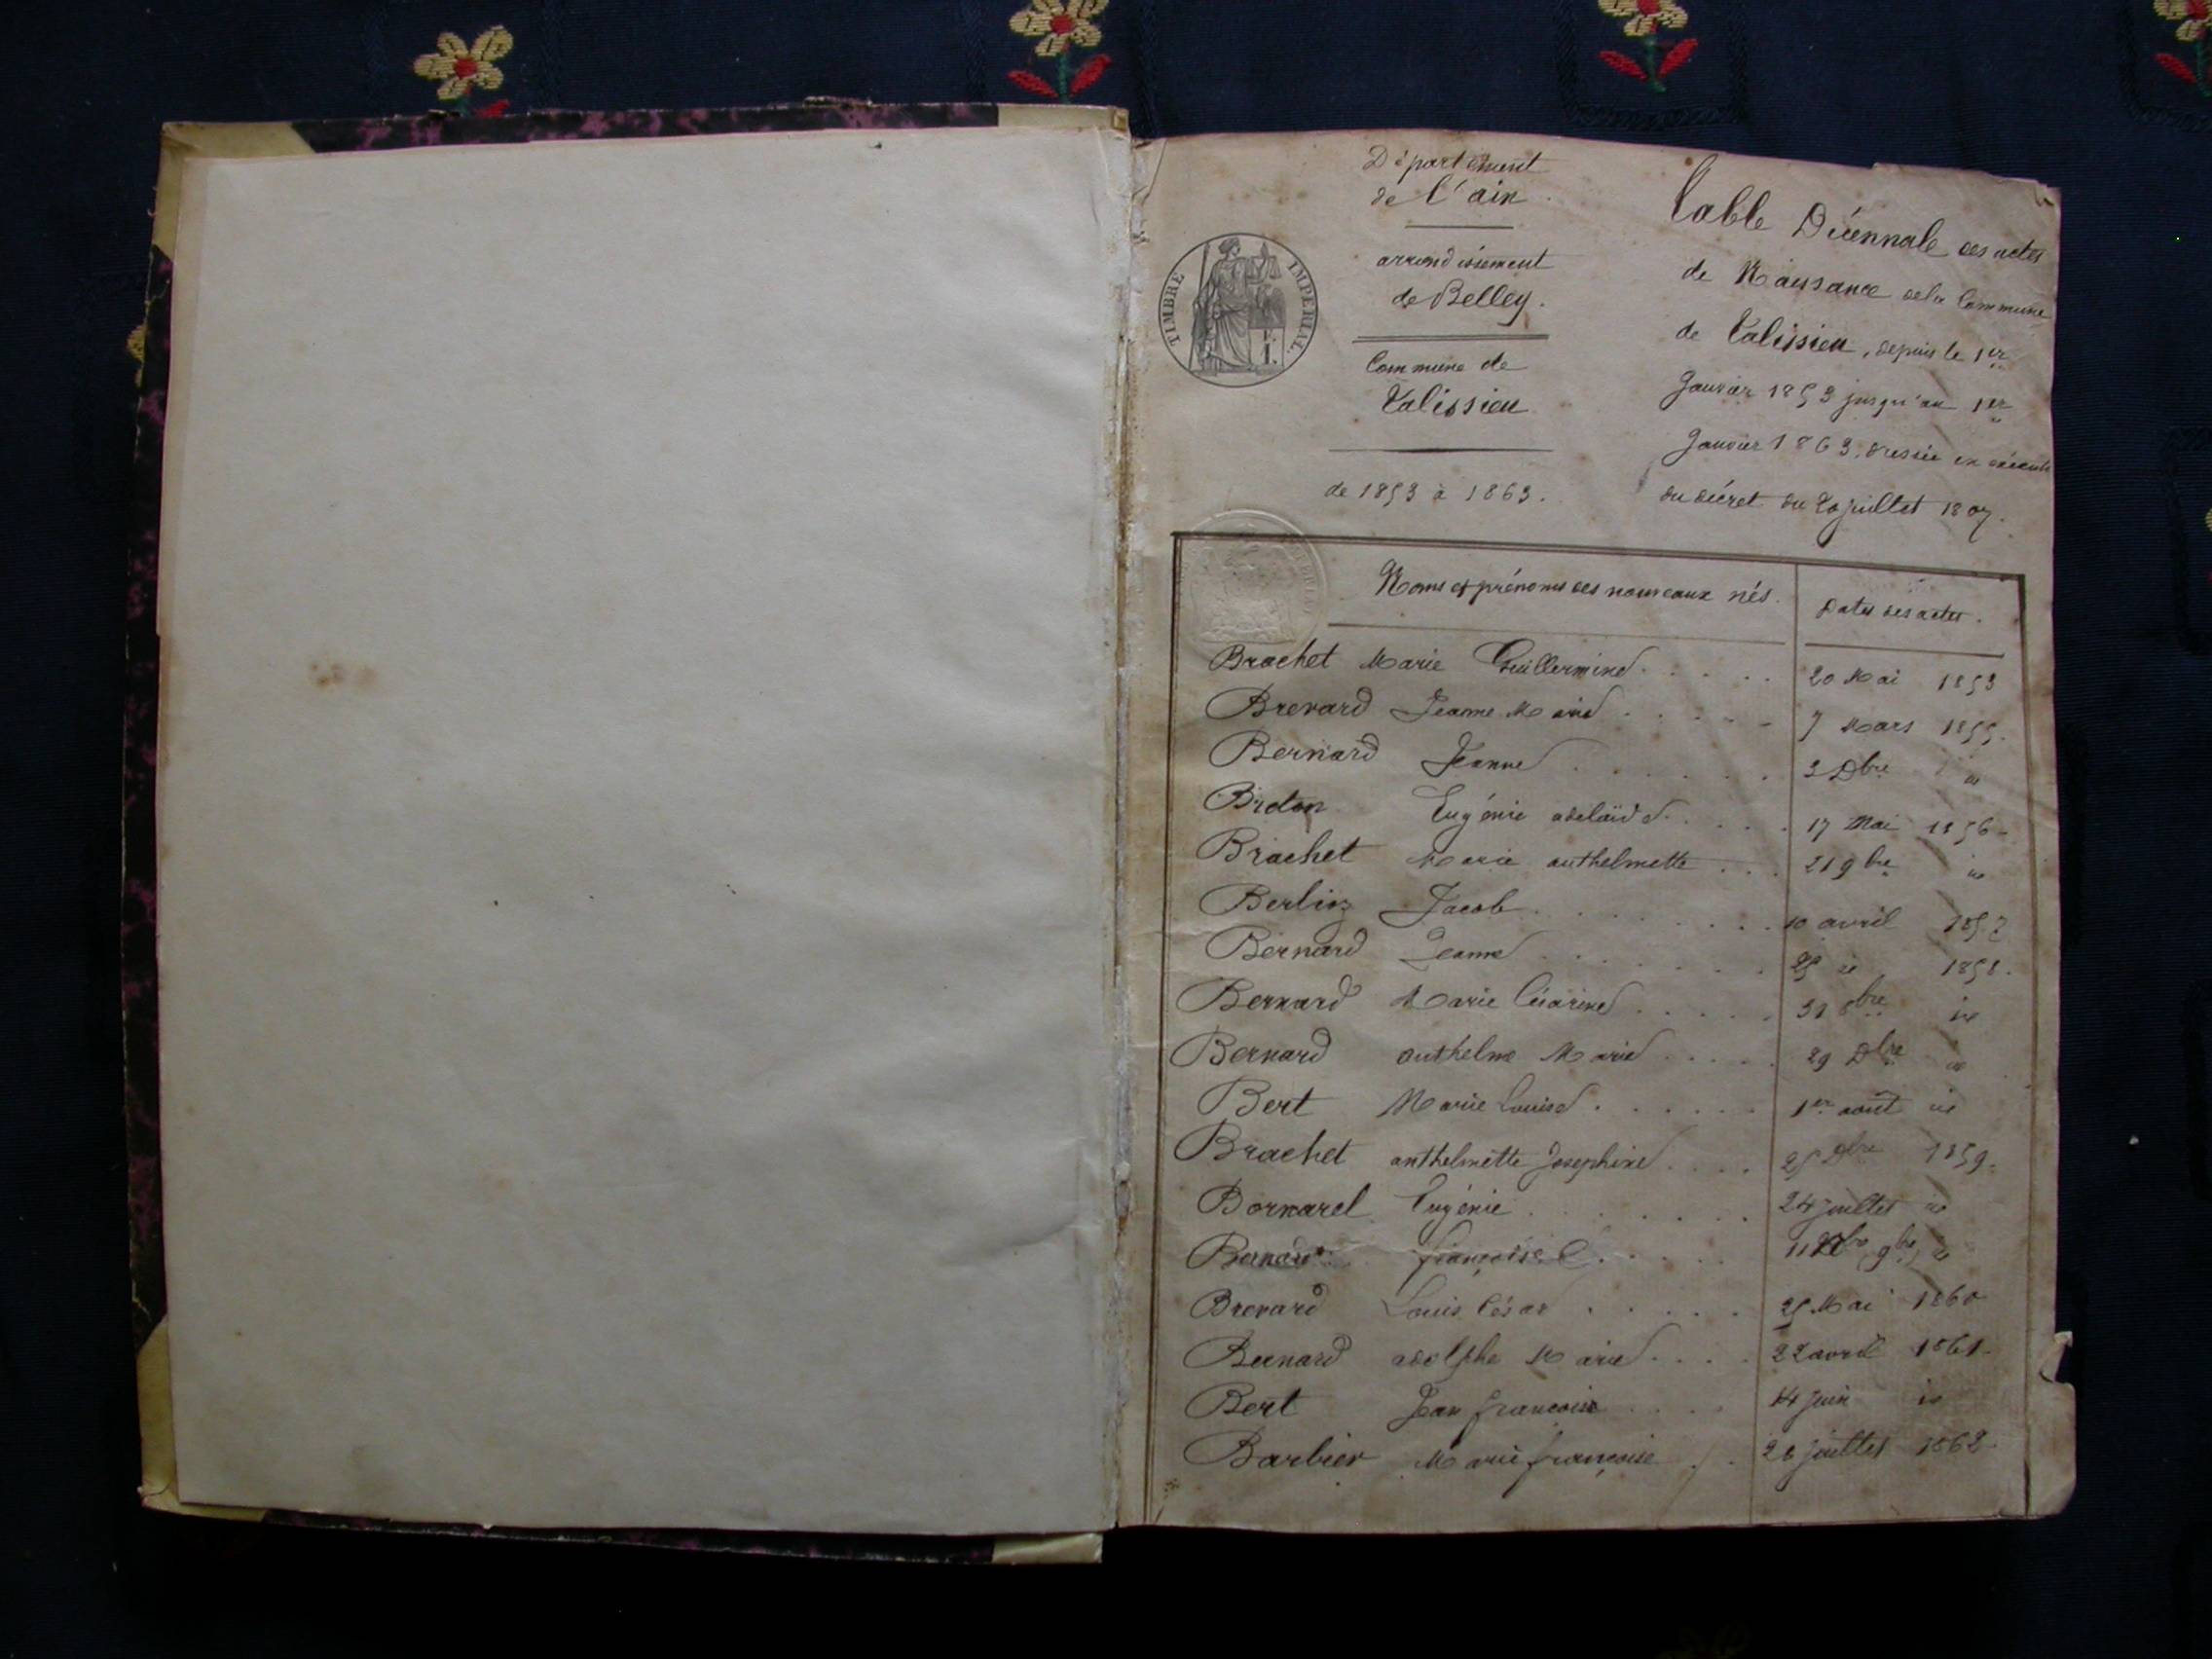 Département
de l'ain.
TIMBRE IMPERIAL.
arrondissement
de Belley.
Commune de
Talissieu
de 1853 à 1863.
Table Décennale des actes
de Naissance de la Commune
de Talissieu, depuis le 1er
Janvier 1853 jusqu'au 1er
Janvier 1863, dressée en
du décret du 20 juillet 1807.
Noms et prénoms des nouveaux nés. Dates des actes.
Brachet Marie Guillermine 20 Mai 1853
Brevard Jeanne Marie 7 Mars 1855.
Bernard Jeanne 3 Dbre id
Breton Eugénie adelaïde 17 Mai 1856
Brachet Marie anthelmette 21 9bre id
Berlioz Jacob 10 avril 1857
Bernard Jeanne 25 id 1858.
Bernard Marie Césarine 31 8bre id
Bernard anthelme Marie 29 Dbre id
Bert Marie Louise 1er aout id
Brachet anthelmette Josephine 25 Dbre 1859.
Bornarel Eugénie 24 juillet id
Bernard françoise 11 9bre id
Brevard Louis César 25 Mai 1860
Bernard adolphe Marie 22 avril 1861
Bert Jean francois 14 Juin id
Barbier Marie françoise 26 juillet 1862